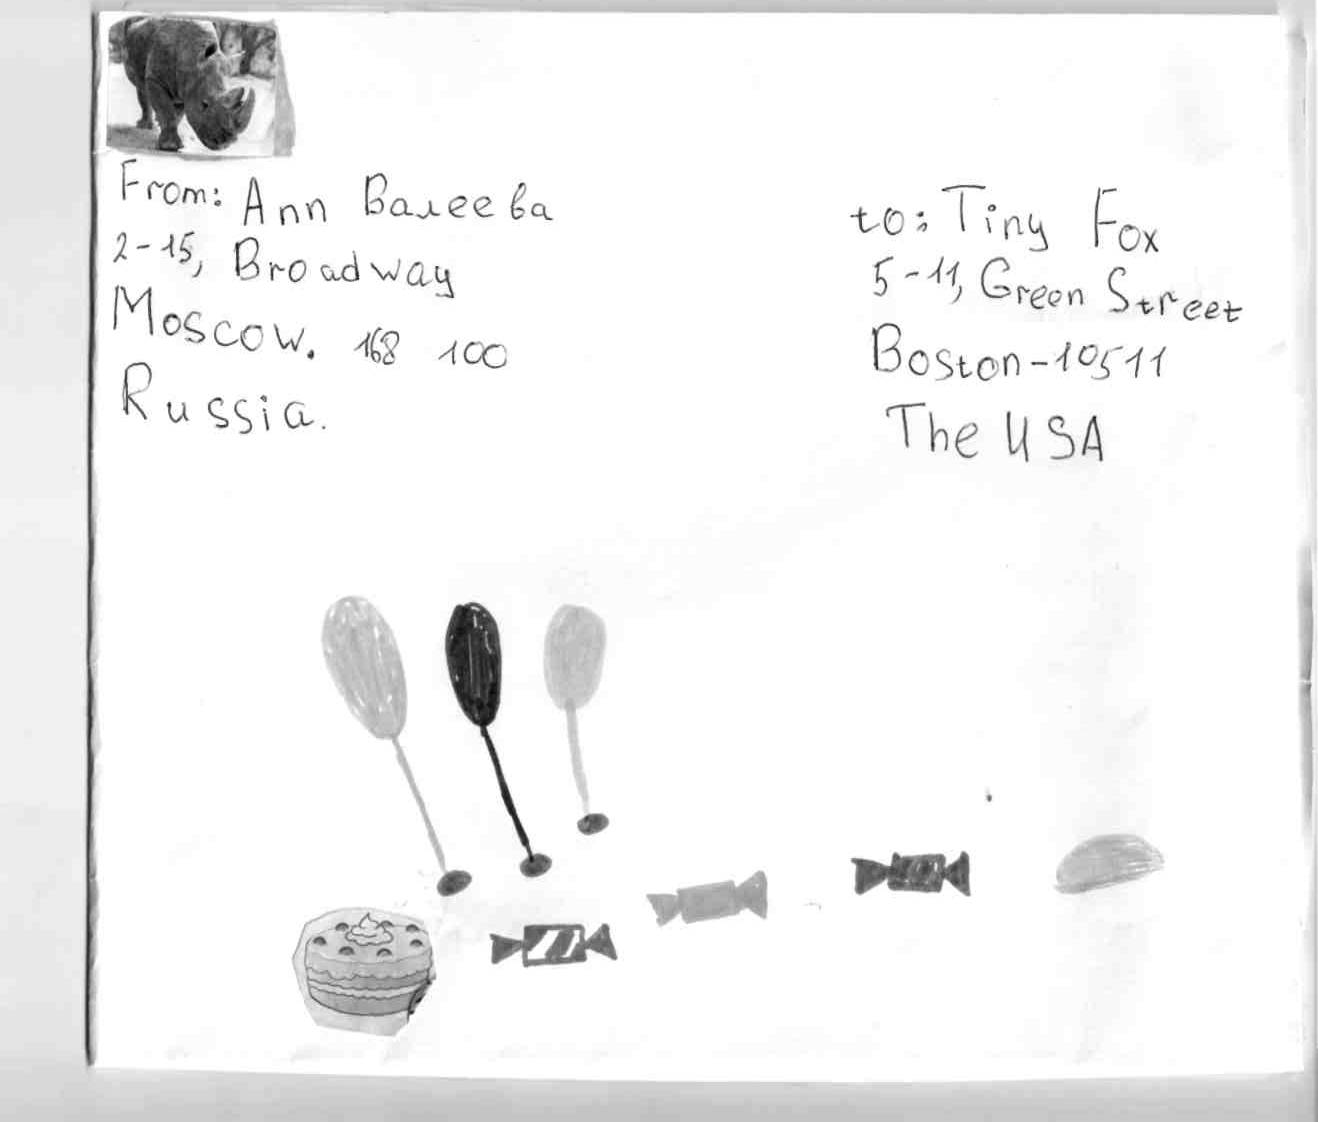 From: Ann Валеева
2-15, Broadway
Moscow. 168 100
Russia.
to: Tiny Fox
5-11, Green Street
Boston-10511
The USA